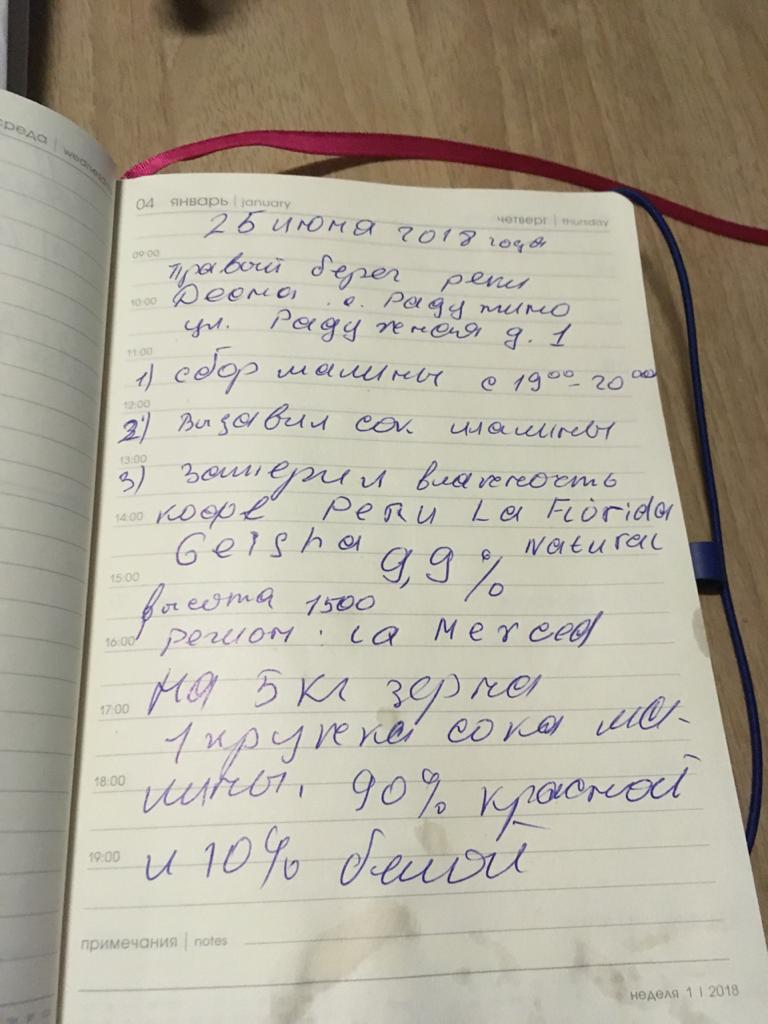 среда | wednesday
04 январь | january
четверг | thursday
25 июня 2018 года
09:00
правый берег реки
10:00
Десна с. Радужино
ул. Радужная д. 1
11:00
1) сбор малины с 19 00 - 20 00
12:00
2) выдавил сок малины
13:00
3) замерил влажность
14:00
кофе Перу La Florida
Geisha 9,9 % Natural
15:00
высота 1500
16:00
регион: La Merced
На 5 кг зерна
17:00
1 кружка сока ма-
18:00
лины. 90% красной
19:00
и 10% белой
примечания | notes
неделя 1 | 2018